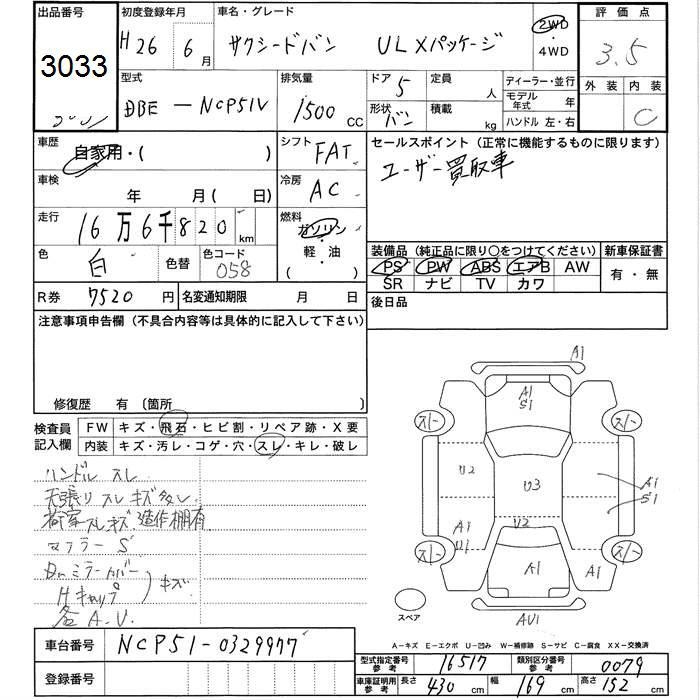 出品番号 初度登録年月 車名・グレード 評価点
3033 H26年 6月 サクシードバン ULXパッケージ 2WD・4WD 3.5
外装 内装
C
型式 排気量 ドア 定員 ディーラー・並行
DBE-NCP51V 1500 CC 5 人 モデル年式 年
形状 バン 積載 kg ハンドル 左・右
車歴 自家用・( ) シフト FAT セールスポイント (正常に機能するものに限ります)
車検 年 月(日) 冷房 AC ユーザー買取車
走行 16万6千820km 燃料 ガソリン・軽・油( )
色 白 色替 色コード 058
装備品 (純正品に限り○をつけてください) 新車保証書
PS PW ABS エアB AW 有・無
SR ナビ TV カワ
R券 7520円 名変通知期限 月 日 後日品
注意事項申告欄 (不具合内容等は具体的に記入して下さい)
修復歴 有 (箇所
検査員記入欄 FW キズ・飛石・ヒビ割・リペア跡・X要
内装 キズ・汚レ・コゲ・穴・スレ・キレ・破レ
ハンドル スレ
天張り スレ キズ 多し
荷室 スレキズ 造作棚有
マフラー S
Drミラーカバー
Hキャップ キズ
各 A.U.
A1
A1
S1
スノー スノー
U2 U3 A1
S1
A1
U1 U2
スノー スノー
A1 A1
スペア AU1
車台番号 NCP51-0329977
登録番号
A-キズ E-エクボ U-凹み W-補修跡 S-サビ C-腐食 XX-交換済
型式指定番号 参考 16517 類別区分番号 参考 0079
車庫証明用 参考 長さ 430 cm 幅 169 cm 高さ 152 cm